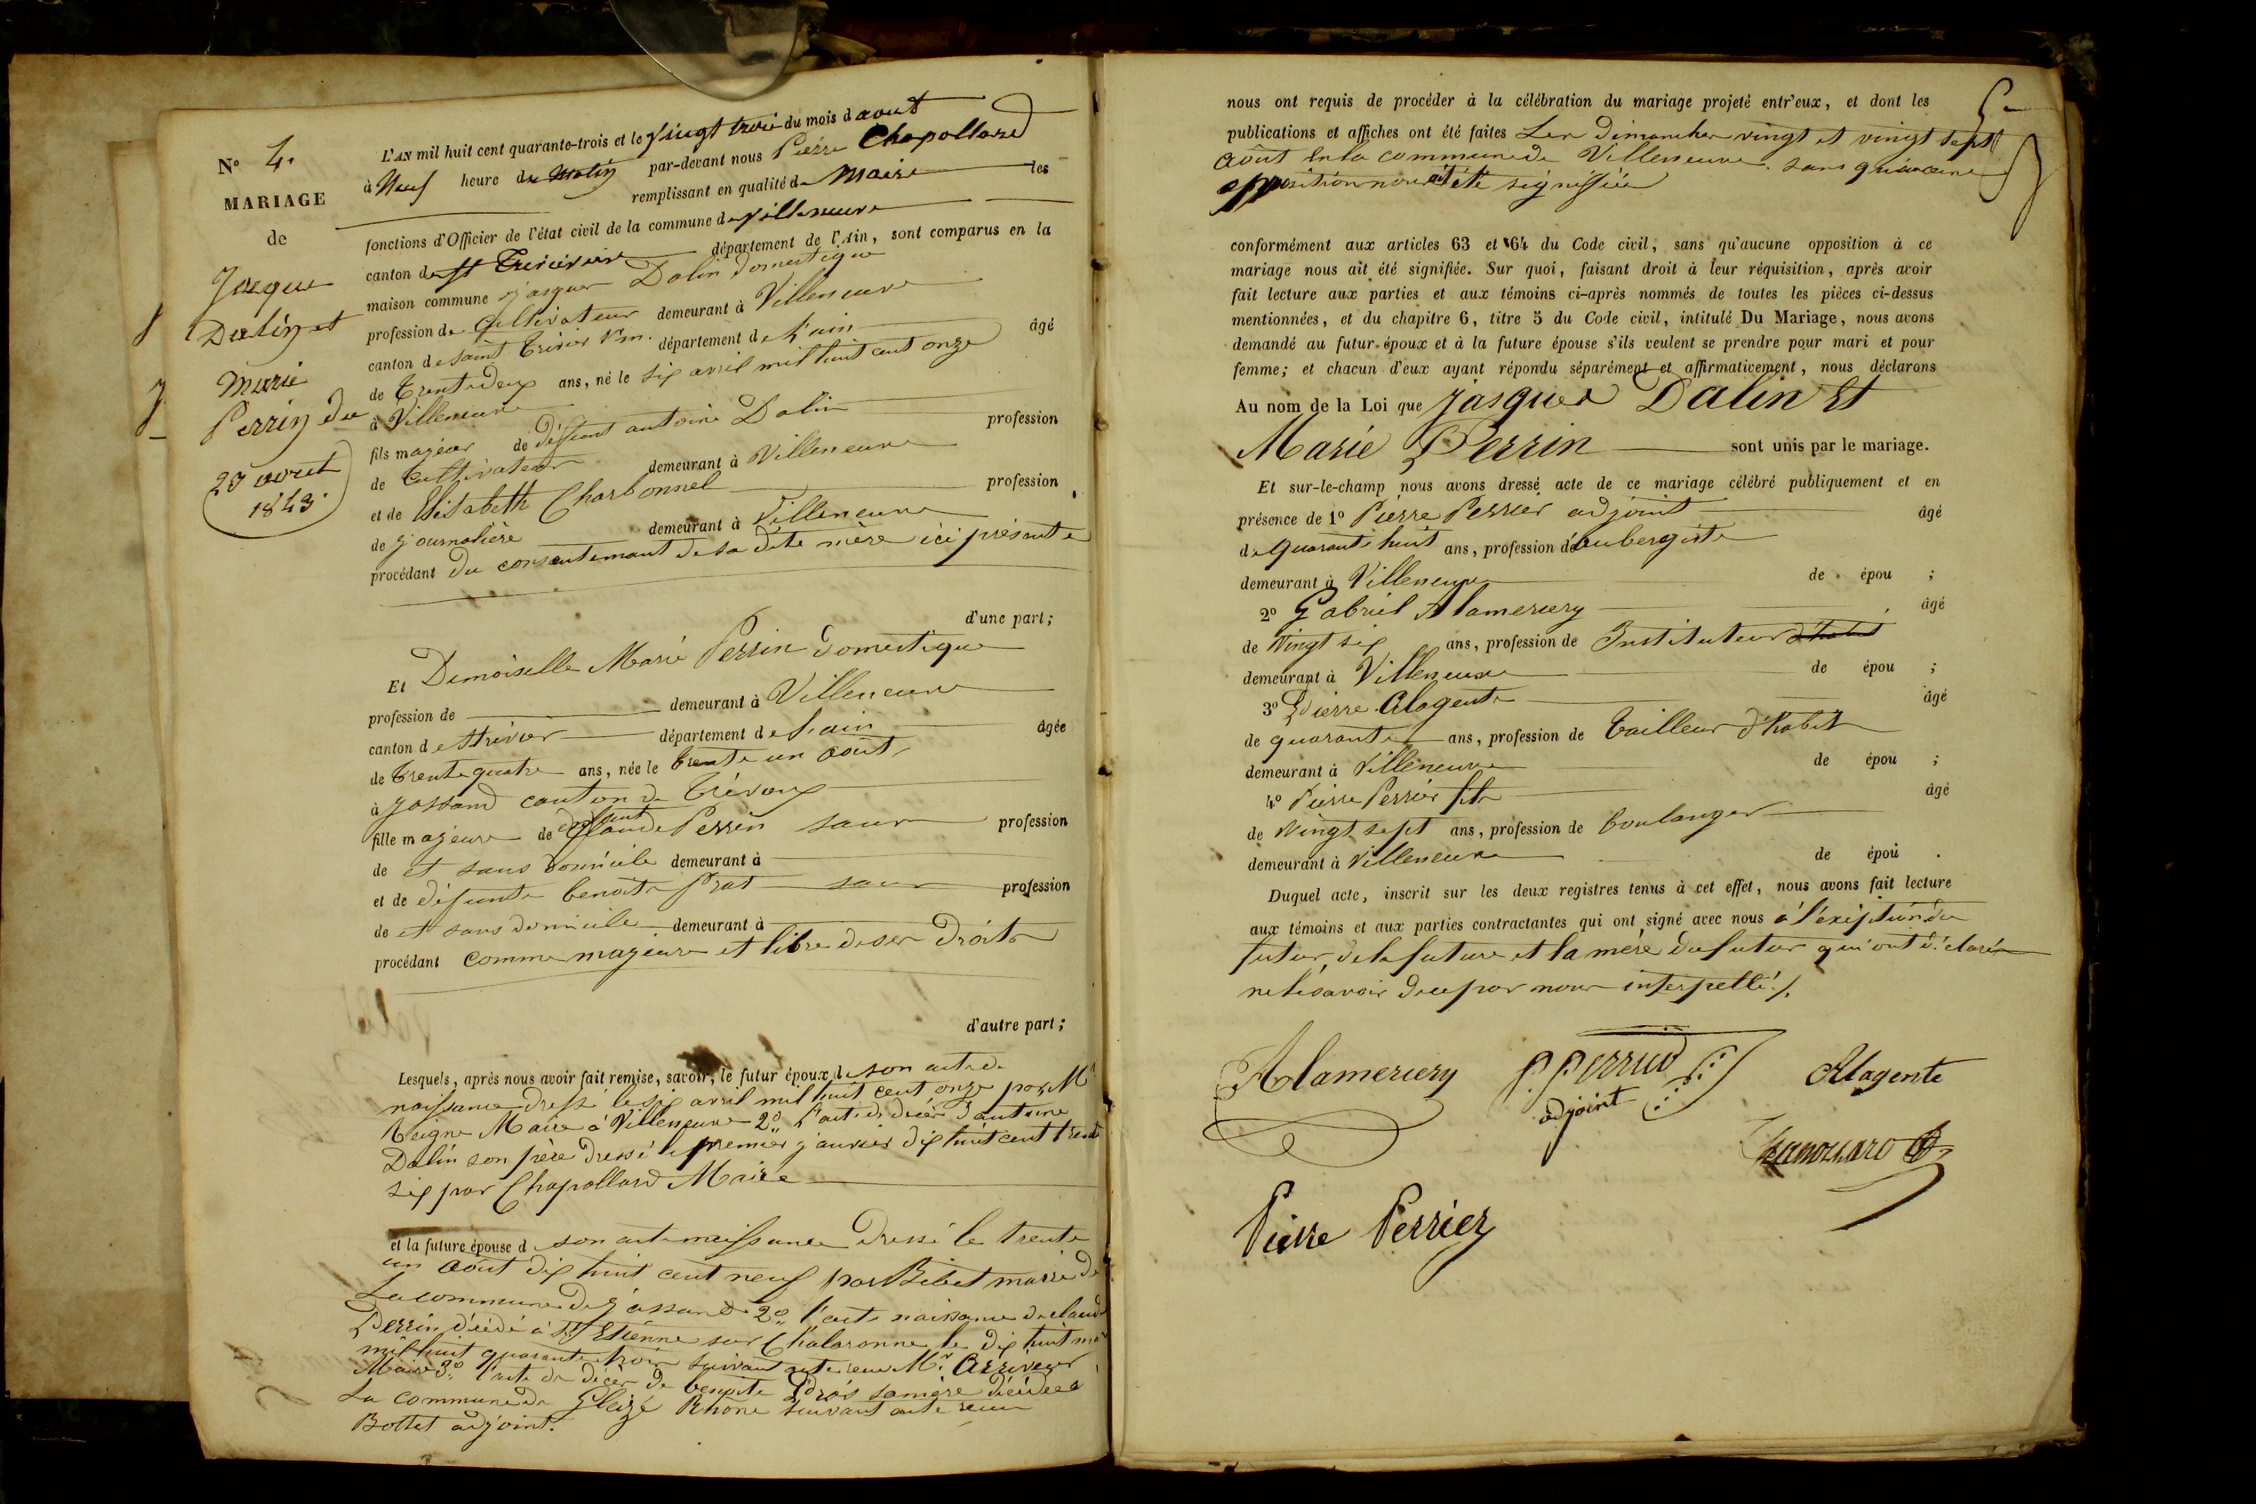 N° 4.
MARIAGE
de
Jacque
Dalin et
Marie
Perrin du
23 aout
1843
L'AN mil huit cent quarante-trois et le Vingt trois du mois d aout
à Neuf heure du matin par-devant nous Pierre Chapollard
remplissant en qualité de Maire les
fonctions d'Officier de l'état civil de la commune de Villeneuve
canton de St Trivier département de l'Ain, sont comparus en la
maison commune Jasques Dalin domestique
profession de Cultivateur demeurant à Villeneuve
canton de saint Trivier département de l'ain âgé
de Trente deux ans, né le six avril mil huit cent onze
à Villeneuve
fils majeur de défunt antoine Dalin profession
de Cultivateur demeurant à Villeneuve
et de Elisabeth Charbonnel profession
de Journalière demeurant à Villeneuve
procédant du consentemant de sa dite mère ici présente
d'une part;
Et Demoiselle Marie Perrin domestique
profession de demeurant à Villeneuve
canton de st trivier département de l'ain âgée
de trente quatre ans, née le trente un août
à Jassand canton de Trévoux
fille majeure de défunt Claude Perrin sans profession
de et sans domicile demeurant à
et de défunte benoite Pras sans profession
de et sans domicile demeurant à
procédant comme majeure et libre de ses droits
d'autre part;
Lesquels, après nous avoir fait remise, savoir, le futur époux de son acte de
naissance dressé le six avril mil huit cent onze par Mr
Teigne Maire à Villeneuve 2° l'acte de décès d'antoine
Dalin son père dressé le premier janvier dix huit cent trente
six par Chapollard Maire
et la future épouse d son acte naissance dressé le trente
un août dix huit cent neuf par Bibet maire de
La commune de Jassand 2° l'acte naissance de claude
Perrin décédé à St Etienne sur Chalaronne le dix huit
mil huit quarante trois suivant acte reçu Mr
Maire 3° l'acte de décès de benoite Pras sa mère décédée à
La commune de Gleizé Rhône suivant acte reçu
Bottet adjoint.
nous ont requis de procéder à la célébration du mariage projeté entr'eux, et dont les
publications et affiches ont été faites Les dimanches vingt et vingt sept
août en la commune de Villeneuve sans qu'aucune
opposition nous ait été signifiée
conformément aux articles 63 et 64 du Code civil, sans qu'aucune opposition à ce
mariage nous ait été signifiée. Sur quoi, faisant droit à leur réquisition, après avoir
fait lecture aux parties et aux témoins ci-après nommés de toutes les pièces ci-dessus
mentionnées, et du chapitre 6, titre 5 du Code civil, intitulé Du Mariage, nous avons
demandé au futur époux et à la future épouse s'ils veulent se prendre pour mari et pour
femme; et chacun d'eux ayant répondu séparément et affirmativement, nous déclarons
Au nom de la Loi que Jasques Dalin Et
Marie Perrin sont unis par le mariage.
Et sur-le-champ nous avons dressé acte de ce mariage célébré publiquement et en
présence de 1° Pierre Perrier adjoint âgé
de quarante huit ans, profession d'aubergiste
demeurant à Villeneuve de épou ;
2° Gabriel Alamercery âgé
de Vingt six ans, profession de Instituteur
demeurant à Villeneuve de épou ;
3° Pierre Alagente âgé
de quarante ans, profession de Tailleur d'habit
demeurant à Villeneuve de épou ;
4° Pierre Perrier fils âgé
de Vingt sept ans, profession de boulanger
demeurant à Villeneuve de épou .
Duquel acte, inscrit sur les deux registres tenus à cet effet, nous avons fait lecture
aux témoins et aux parties contractantes qui ont signé avec nous à l'exeption du
futur, de la future et la mère du futur qui ont déclarés
ne le savoir de ce par nous interpellé ./.
Alamercery
adjoint
Alagente
Pierre Perrier